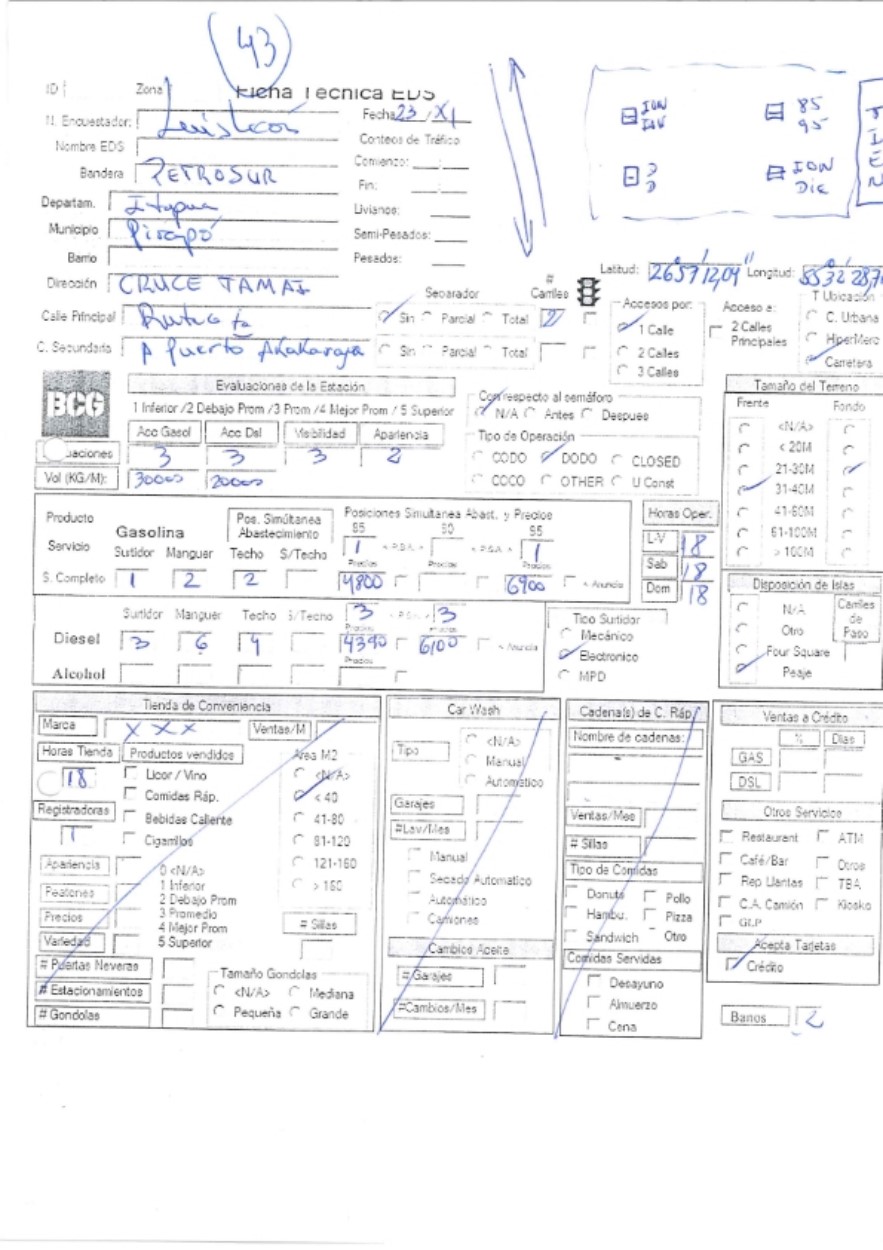 43
ID Zona Ficha Tecnica EDS
N. Encuestador: Luis León Fecha 23 / XI
Nombre EDS Conteos de Tráfico
Bandera PETROSUR Comienzo:
Fin:
Departam. Itapua Livianos:
Municipio Pirapó Semi-Pesados:
Barrio Pesados:
85
95
ION
DIE
TIEN
Dirección CRUCE TAMAI
Latitud: 26571209 Longitud:
Calle Principal Ruta 6 Sin Parcial Total 2
C. Secundaria A Puerto Sin Parcial Total
Separador # Carriles
Accesos por:
1 Calle
2 Calles
3 Calles
Acceso a:
2 Calles Principales
T Ubicación
C. Urbana
HiperMerc
Carretera
BCG
Evaluaciones de la Estación
1 Inferior /2 Debajo Prom /3 Prom /4 Mejor Prom / 5 Superior
Acc Gasol Acc Dsl Visibilidad Apariencia
uaciones 3 3 3 2
Vol (KG/M): 30000 20000
Con respecto al semáforo
N/A Antes Despues
Tipo de Operación
CODO DODO CLOSED
COCO OTHER U Const
Tamaño del Terreno
Frente Fondo
<N/A>
< 20M
21-30M
31-40M
41-60M
61-100M
> 100M
Producto
Servicio Gasolina
Pos. Simúltanea Abastecimiento
Posiciones Simultanea Abast. y Precios
85 90 95
1 < P.S.A. > < P.S.A. > 1
Surtidor Manguer Techo S/Techo Precios Precios Precios
S. Completo 1 2 2 4800 6900 < Anuncia
Horas Oper.
L-V 18
Sab 18
Dom 18
Surtidor Manguer Techo S/Techo 3 < P.S.A. > 3
Diesel 3 6 4 4390 6100 < Anuncia
Precios
Alcohol
Tipo Surtidor
Mecánico
Electronico
MPD
Disposición de Islas
N/A
Otro
Four Square
Peaje
Carriles de Paso
Tienda de Conveniencia
Marca X X X Ventas/M
Horas Tienda Productos vendidos Area M2
18
Licor / Vino
Comidas Ráp.
Bebidas Caliente
Cigarrillos
<N/A>
< 40
41-80
81-120
121-160
> 160
Registradoras
1
Apariencia
Peatones
Precios
Variedad
0 <N/A>
1 Inferior
2 Debajo Prom
3 Promedio
4 Mejor Prom
5 Superior
# Sillas
# Puertas Neveras
# Estacionamientos
# Gondolas
Tamaño Gondolas
<N/A> Mediana
Pequeña Grande
Car Wash
Tipo
<N/A>
Manual
Automático
Garajes
#Lav/Mes
Manual
Secado Automatico
Automático
Camiones
Cambios Aceite
# Garajes
#Cambios/Mes
Cadena(s) de C. Ráp.
Nombre de cadenas:
Ventas/Mes
# Sillas
Tipo de Comidas
Donuts Pollo
Hambu. Pizza
Sandwich Otro
Comidas Servidas
Desayuno
Almuerzo
Cena
Ventas a Crédito
% Dias
GAS
DSL
Otros Servicios
Restaurant ATM
Café/Bar Otros
Rep Llantas TBA
C.A. Camión Kiosko
GLP
Acepta Tarjetas
Crédito
Banos 2